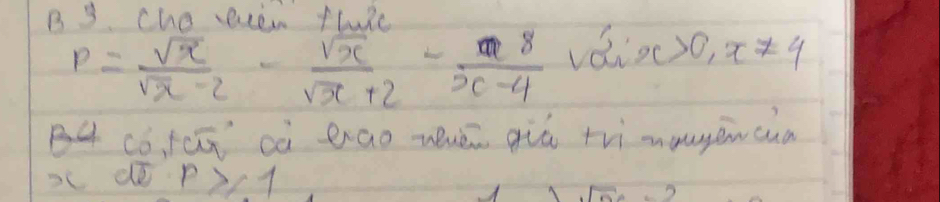 B3. Cho biểu thức
P = √x/(√x - 2) - √x/(√x + 2) - 8/(x - 4) với x > 0, x ≠ 4
B4 có tất cả bao nhiêu giá trị nguyên của
x để P ≥ 1